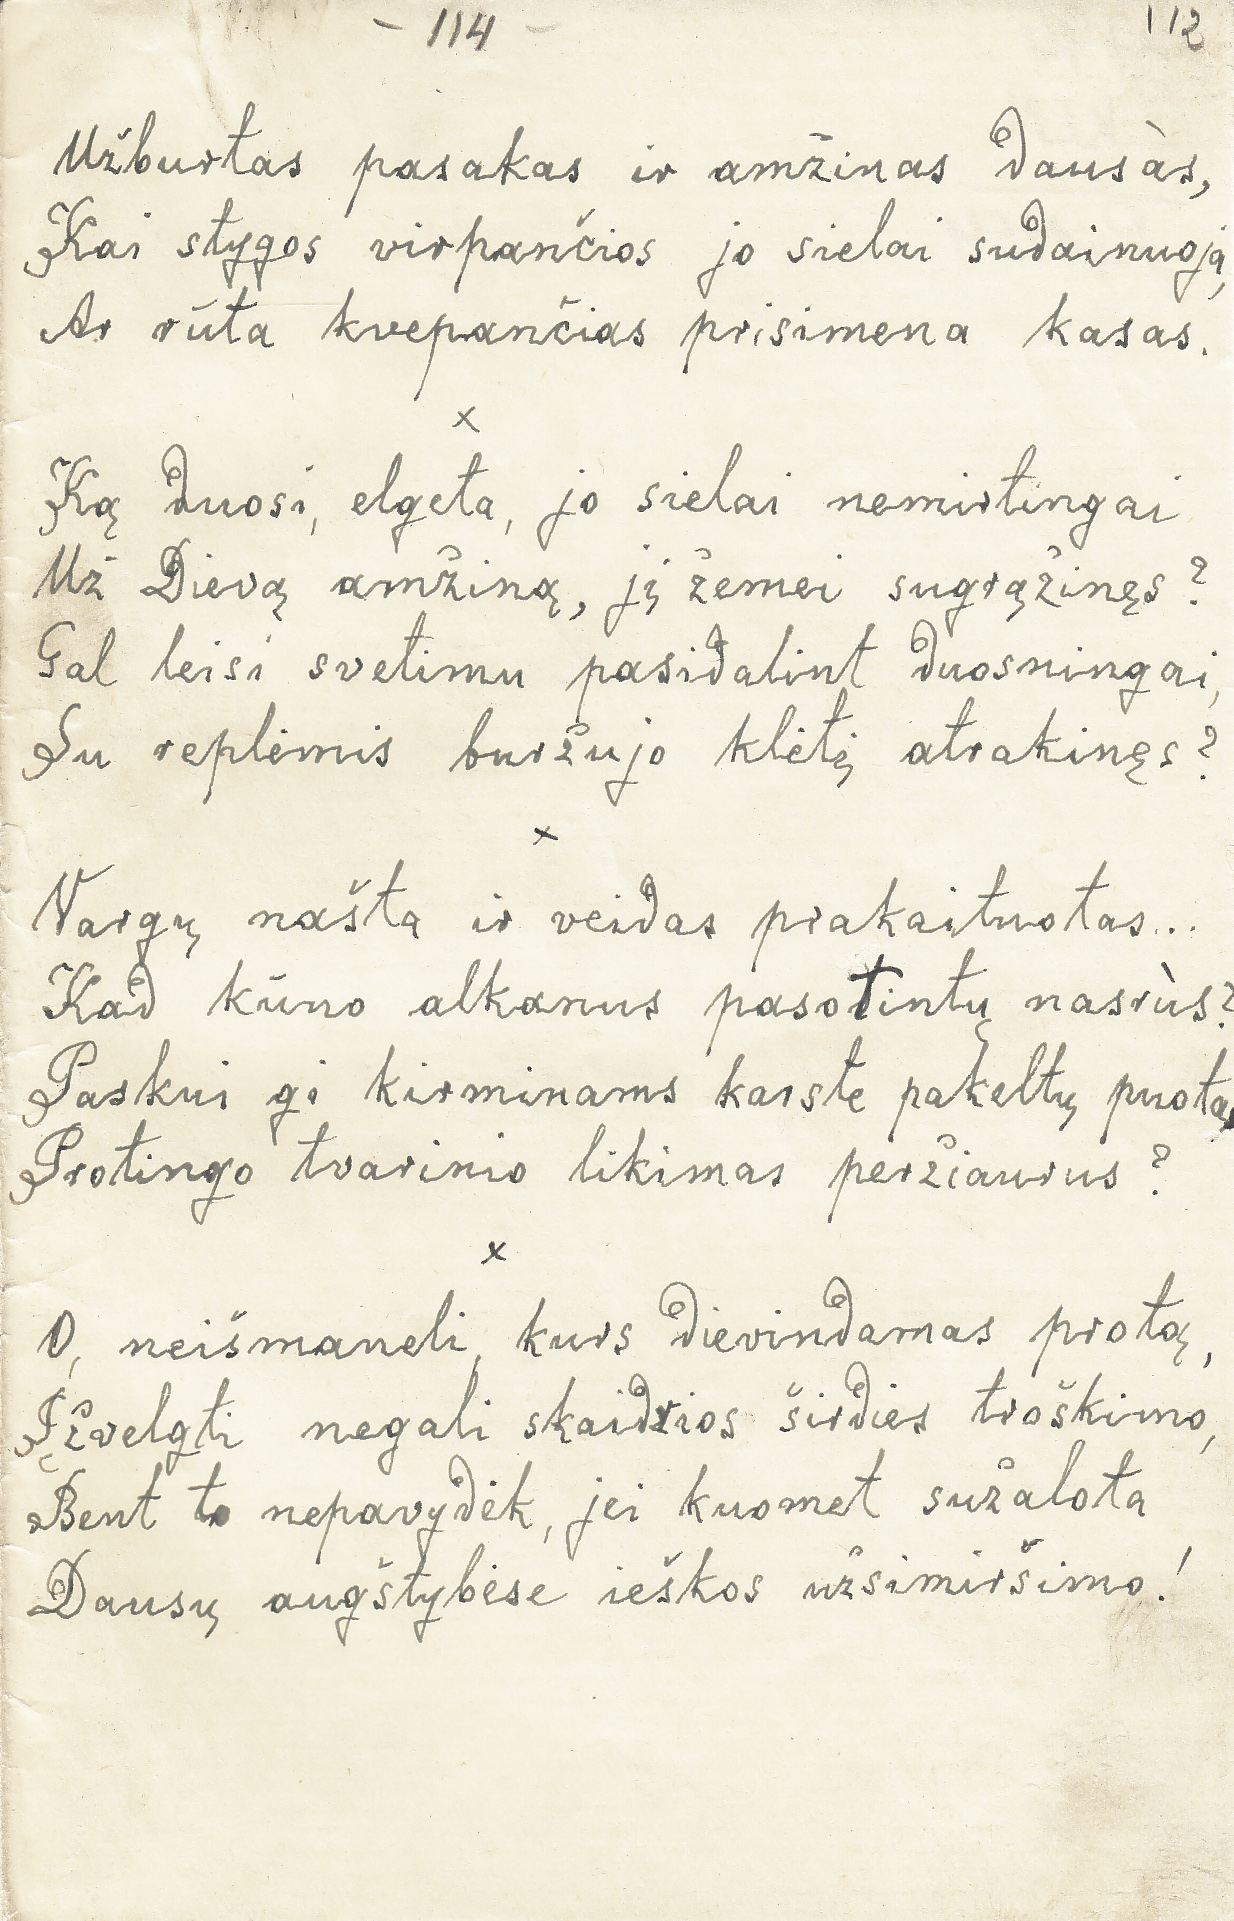 - 114 -
112
Užburtas pasakas ir amžinas dausàs,
Kai stygos virpančios jo sielai sudainuoją,
Ar rūta kvepančias prisimena kasas.
x
Ką duosi, elgeta, jo sielai nemirtingai
Už Dievą amžiną, jį žemei sugrąžinęs?
Gal leisi svetimu pasidalint duosningai,
Su replėmis buržujo klėtį atrakinęs?
x
Vargų našta ir veidas prakaituotas...
Kad kūno alkanus pasotintų nasrùs?
Paskui gi kirminams karste pakeltų puotą,
Protingo tvarinio likimas peržiaurus?
x
O, neišmaneli, kurs dievindamas protą,
Įžvelgti negali skaidrios širdies troškimo,
Bent to nepavydėk, jei kuomet sužalota
Dausų augštybėse ieškos užsimiršimo!